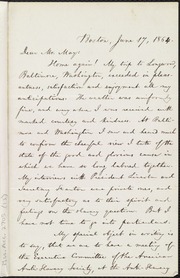 Boston, June 17, 1864.
Dear Mr. May:
Home again! My trip to Longwood,
Baltimore, Washington, exceeded in pleas-
antness, satisfaction and enjoyment all my
anticipations. The weather was uniformly
fine, and every where I was received with
marked courtesy and kindness. At Balti-
more and Washington I saw and heard much
to confirm the cheerful view I take of the
state of the good and glorious cause in
which we have so long labored together.
My interviews with President Lincoln and
Secretary Stanton are private ones, and
very satisfactory as to their spirit and
feelings on the slavery question. But I
have not time to go into particulars.
My special object in writing is
to say, that we are to have a meeting of
the Executive Committee of the American
Anti-Slavery Society, at the Anti-Slavery